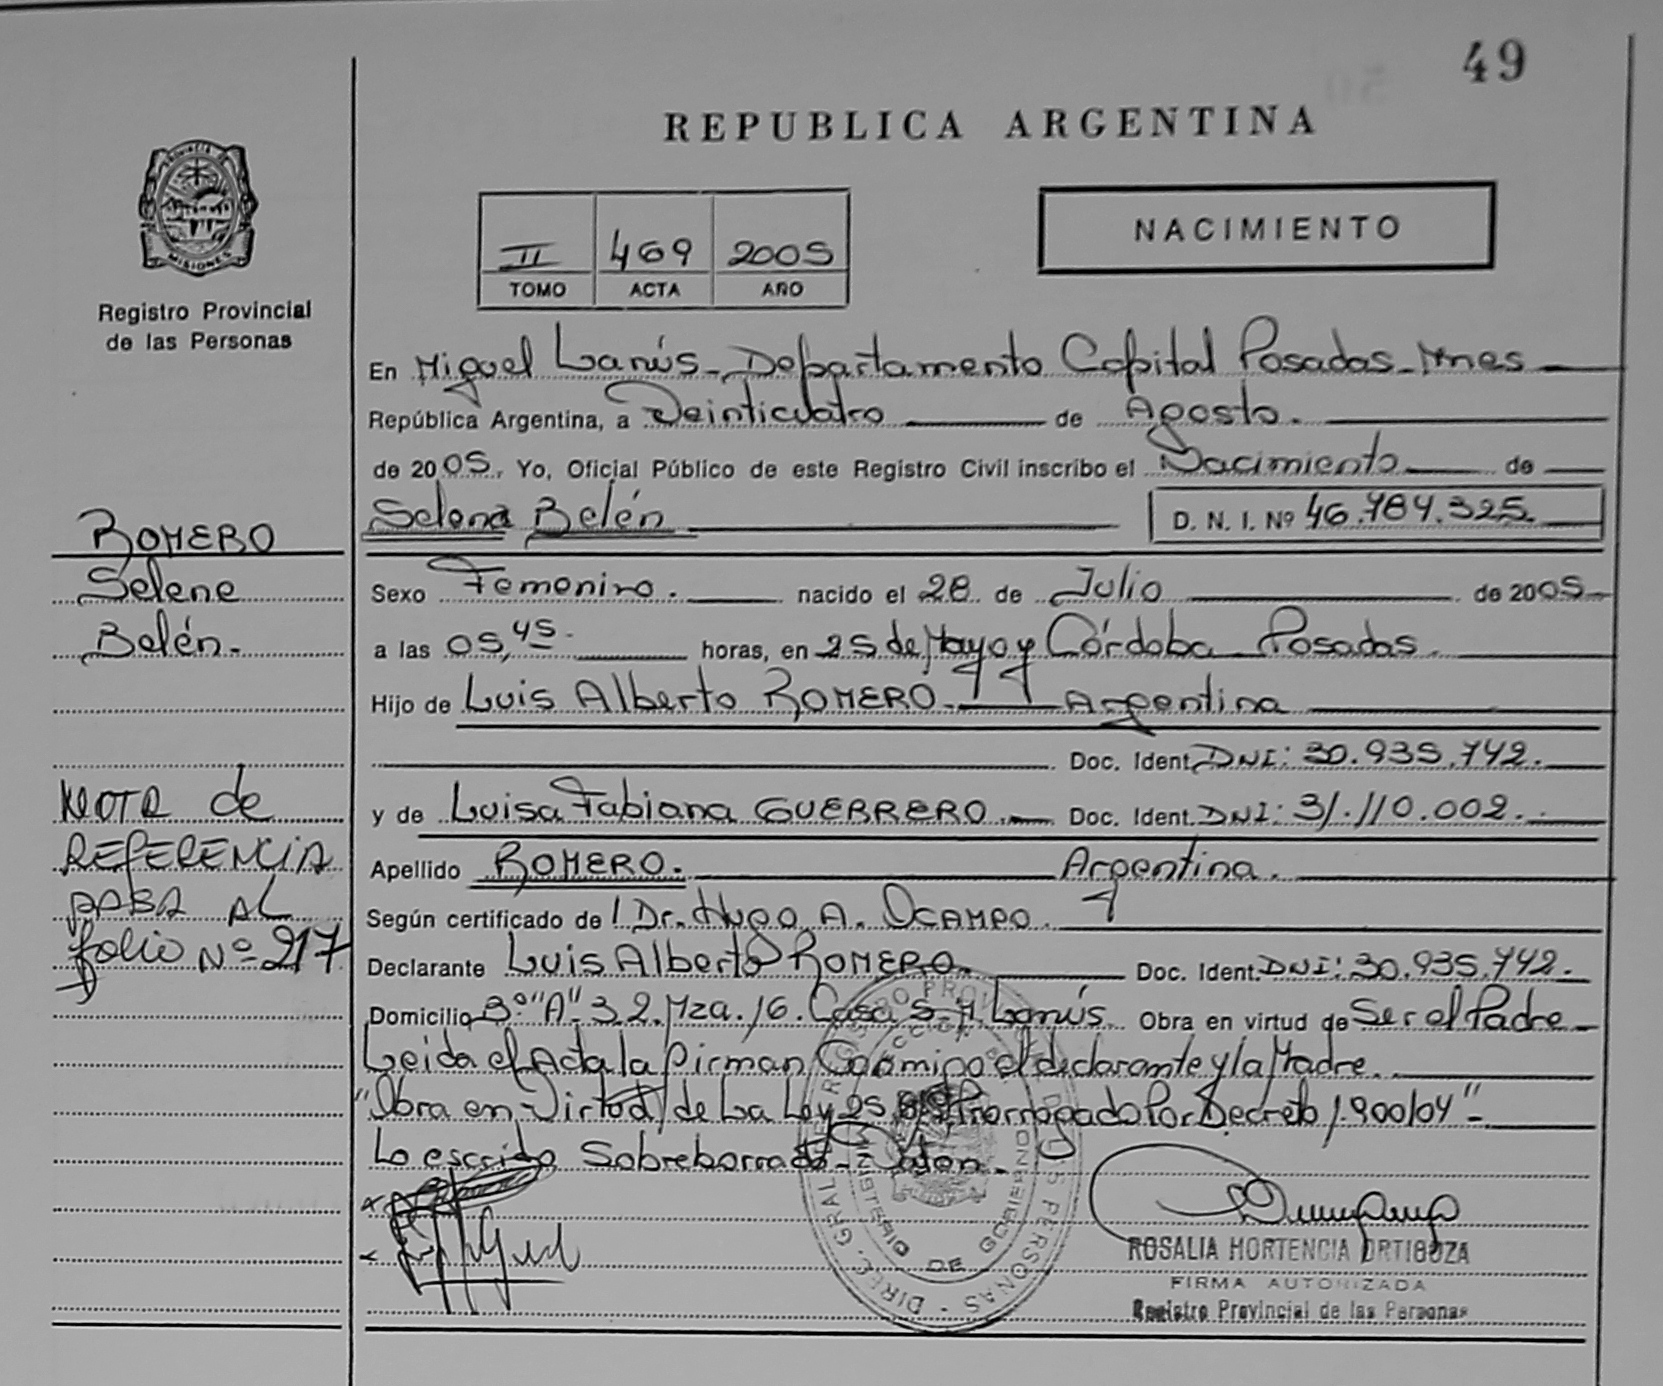 49
REPUBLICA ARGENTINA
PROVINCIA DE
MISIONES
Registro Provincial
de las Personas
II 469 2005
TOMO ACTA AÑO
NACIMIENTO
En Miguel Lanús - Departamento Capital Posadas - Mnes
República Argentina, a Veinticuatro de Agosto.
de 2005. Yo, Oficial Público de este Registro Civil inscribo el Nacimiento de
Selena Belén
D. N. I. Nº 46.484.325.
ROMERO
Selene
Belén.
Sexo Femenino. nacido el 28 de Julio de 2005
a las 05,45. horas, en 25 de Mayo y Córdoba Posadas.
Hijo de Luis Alberto ROMERO Argentina
Doc. Ident. DNI: 30.935.742.
y de Luisa Fabiana GUERRERO. Doc. Ident. DNI: 31.110.002.
Apellido ROMERO. Argentina.
Según certificado de Dr. Hugo A. OCAMPO.
Declarante Luis Alberto ROMERO. Doc. Ident. DNI: 30.935.742.
Domicilio 3º "A" 32. Mza. 16. Casa 5 - M Lanús. Obra en virtud de Ser el Padre
Leida el Acta la firman Conmigo el declarante y la Madre.
"Obra en Virtud de La Ley 25 Prorrogado Por Decreto 1.900/04"
Lo escrito Sobreborrado
NOTA de
REFERENCIA
PASA AL
folio Nº 217
ROSALIA HORTENCIA ORTIGOZA
FIRMA AUTORIZADA
Registro Provincial de las Personas